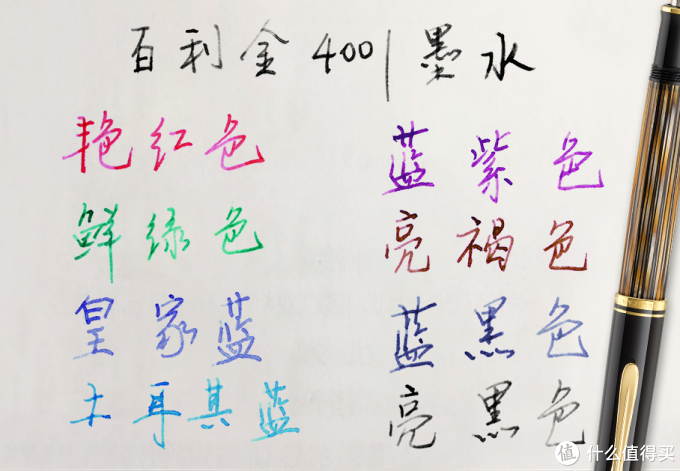 百利金400|墨水
艳红色
蓝紫色
鲜绿色
亮褐色
皇家蓝
蓝黑色
土耳其蓝
亮黑色
值 什么值得买